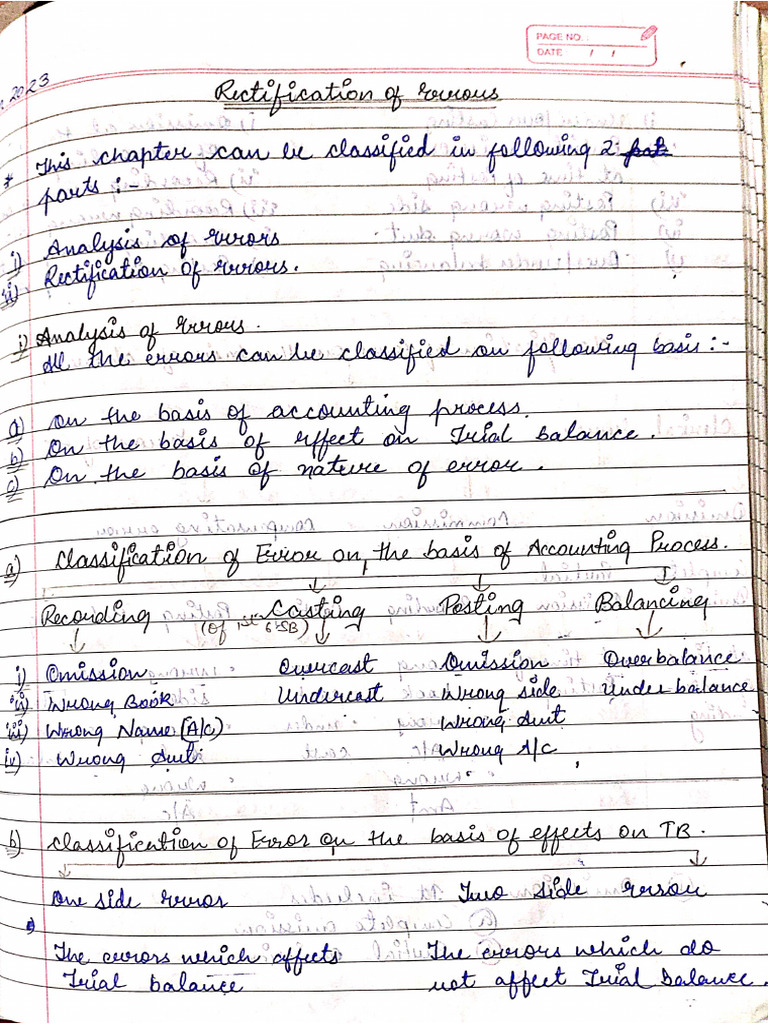 PAGE NO.
DATE / /
2023
Rectification of errors
* This chapter can be classified in following 2
parts :-
i) Analysis of errors
ii) Rectification of errors.
i) Analysis of errors.
All the errors can be classified on following basis :-
a) On the basis of accounting process.
b) On the basis of effect on Trial balance.
c) On the basis of nature of error.
a) Classification of Error on the basis of Accounting Process.
Recording Casting Posting Balancing
(Of 1st 6 SB)
i) Omission Overcast Omission Overbalance
ii) Wrong Book Undercast Wrong side Under balance
iii) Wrong Name (A/c) Wrong Amt
iv) Wrong Amt Wrong A/c
b) Classification of Error on the basis of effects on TB.
One side error Two side error
The errors which affects The errors which do
Trial balance not affect Trial balance.